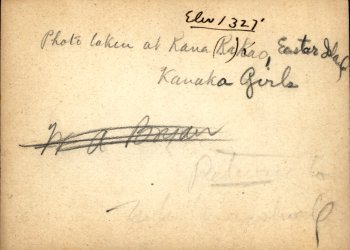 Elev 1327'
Photo taken at Rana (Ra)Kao, Easter Isl.
Kanaka Girls
W A Bryan
Return to